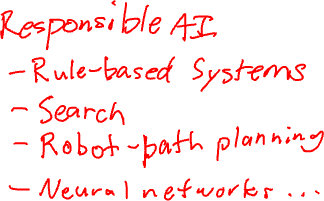 Responsible AI
- Rule-based Systems
- Search
- Robot-path planning
- Neural networks ...